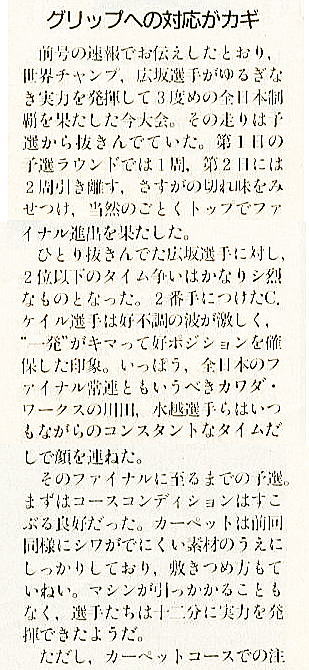 グリップへの対応がカギ
前号の速報でお伝えしたとおり,
世界チャンプ, 広坂選手がゆるぎな
き実力を発揮して3度めの全日本制
覇を果たした今大会。その走りは予
選から抜きんでていた。第1日の
予選ラウンドでは1周, 第2日には
2周引き離す, さすがの切れ味をみ
せつけ, 当然のごとくトップでファ
イナル進出を果たした。
ひとり抜きんでた広坂選手に対し,
2位以下のタイム争いはかなりシ烈
なものとなった。2番手につけたC.
ケイル選手は好不調の波が激しく,
"一発"がキマって好ポジションを確
保した印象。いっぽう, 全日本のフ
ァイナル常連ともいうべきカワダ・
ワークスの川田, 水越選手らはいつ
もながらのコンスタントなタイムだ
しで顔を連ねた。
そのファイナルに至るまでの予選。
まずはコースコンディションはすこ
ぶる良好だった。カーペットは前回
同様にシワがでにくい素材のうえに
しっかりしており, 敷きつめ方もて
いねい。マシンが引っかかることも
なく, 選手たちは十二分に実力を発
揮できたようだ。
ただし, カーペットコースでの注